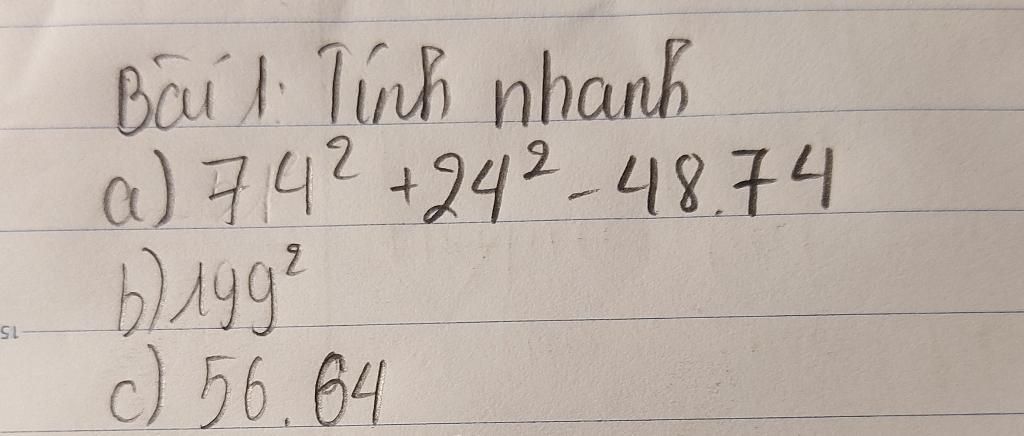 Bài 1: Tính nhanh
a) 74² + 24² - 48.74
b) 199²
c) 56.64
15